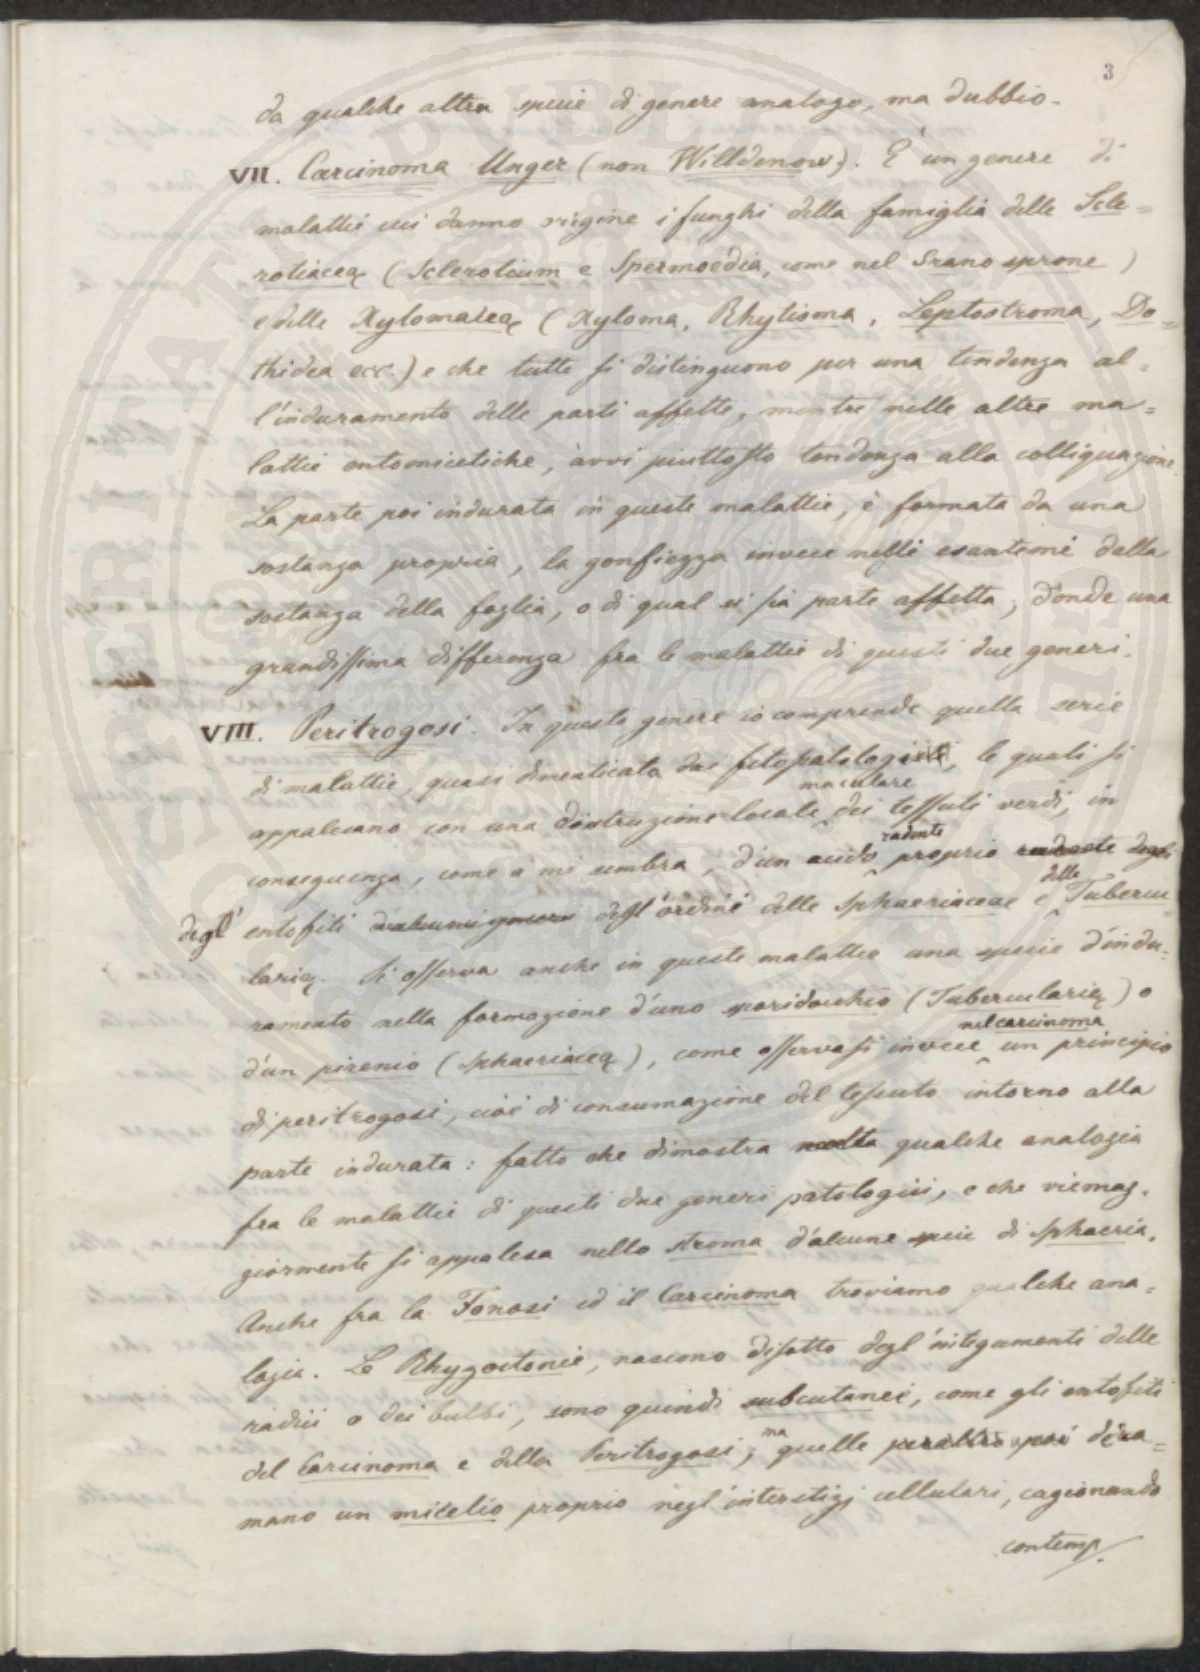 3
da qualche altra specie di genere analogo, ma dubbio.
VII. Carcinoma Unger (non Willdenow). È un genere di
malattie cui danno origine i funghi della famiglia delle Scle=
rotiaceae (Sclerotium e Spermoedia, come nel Grano sprone)
e delle Xylomaceae (Xyloma, Rhytisma, Leptostroma, Do=
thidea ecc.) e che tutte si distinguono per una tendenza al=
l'induramento delle parti affette, mentre nelle altre ma=
lattie entomicetiche, avvi piuttosto tendenza alla colliquazione.
La parte poi indurata in queste malattie, è formata da una
sostanza propria, la gonfiezza invece negli esantemi dalla
sostanza della foglia, o di qual si sia parte affetta, d'onde una
grandissima differenza fra le malattie di questi due generi.
VIII. Peritrogosi. In questo genere io comprendo quella serie
di malattie, quasi dimenticata dai fitopatologi, le quali si
appalesano con una distruzione locale maculare dei tessuti verdi, in
conseguenza, come a me sembra, d'un acido radente proprio radente degli
degl' entofiti d'alcuni generi dell'ordine delle Sphaeriaceae e delle Tubercu=
lariae. Si osserva anche in queste malattie una specie d'indu=
ramento nella formazione d'uno sporidochio (Tuberculariae) o
d'un pirenio (Sphaeriaceae), come osservasi invece nel carcinoma un principio
di peritrogosi, cioè di consumazione del tessuto intorno alla
parte indurata: fatto che dimostra molta qualche analogia
fra le malattie di questi due generi patologici, e che viemag=
giormente si appalesa nello stroma d'alcune specie di Sphaeria.
Anche fra la Fonosi ed il Carcinoma troviamo qualche ana=
logia. Le Rhyzoctonie, nascono disotto degl'integamenti delle
radici o dei bulbi, sono quindi subcutanei, come gli entofiti
del Carcinoma e della Peritrogosi; ma quelle peraltro poi dira=
mano un micelio proprio negl'interstizj cellulari, cagionando
contemp.